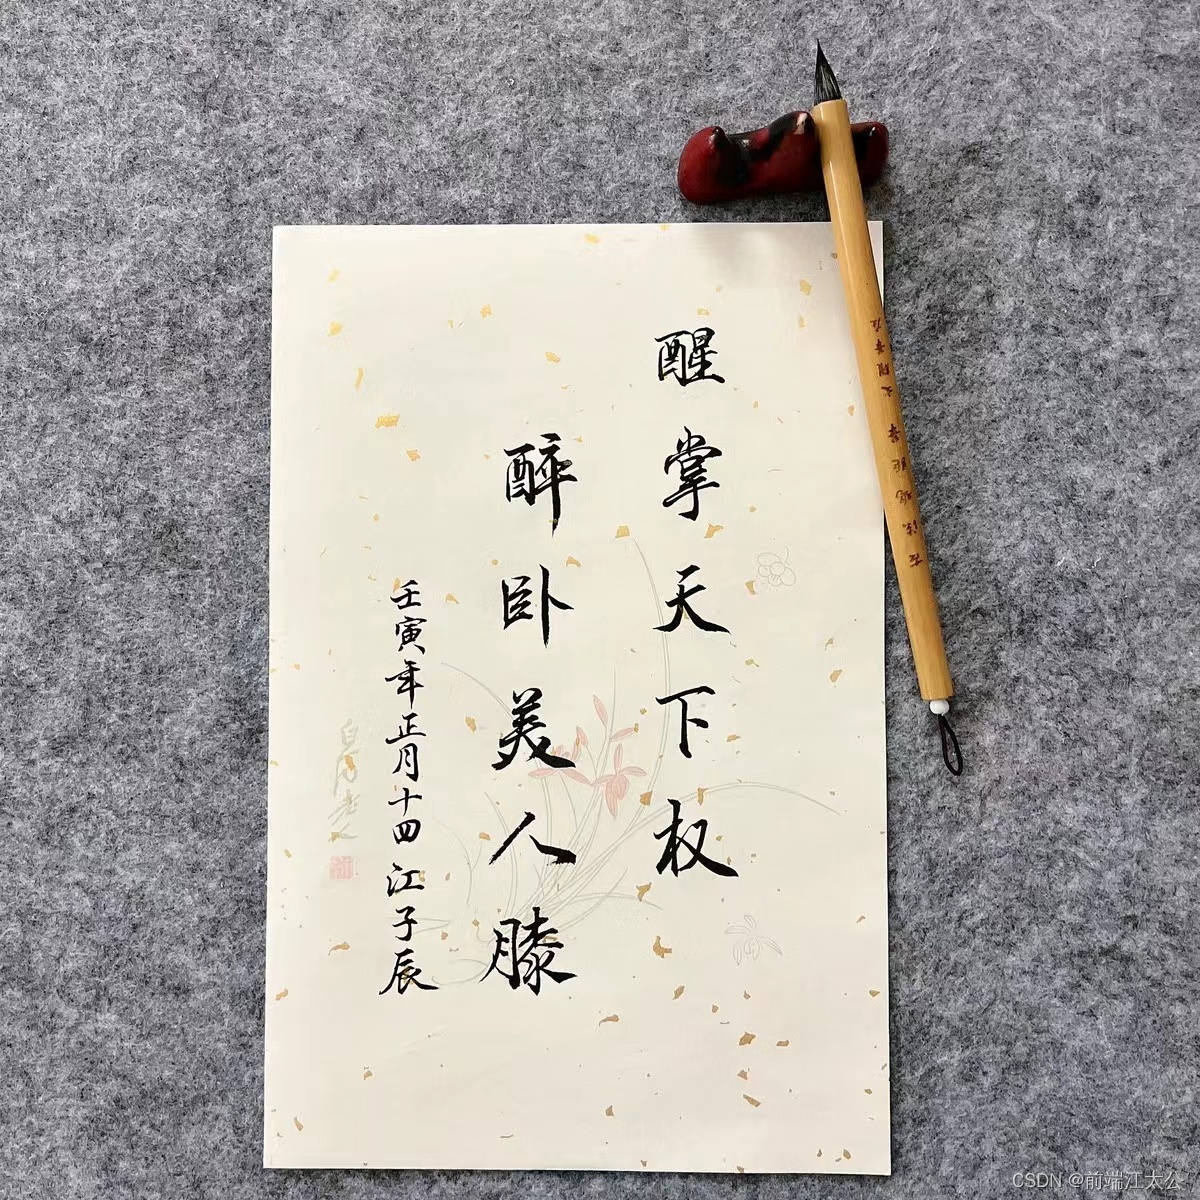 醒掌天下权
醉卧美人膝
壬寅年正月十四江子辰
CSDN @前端江太公